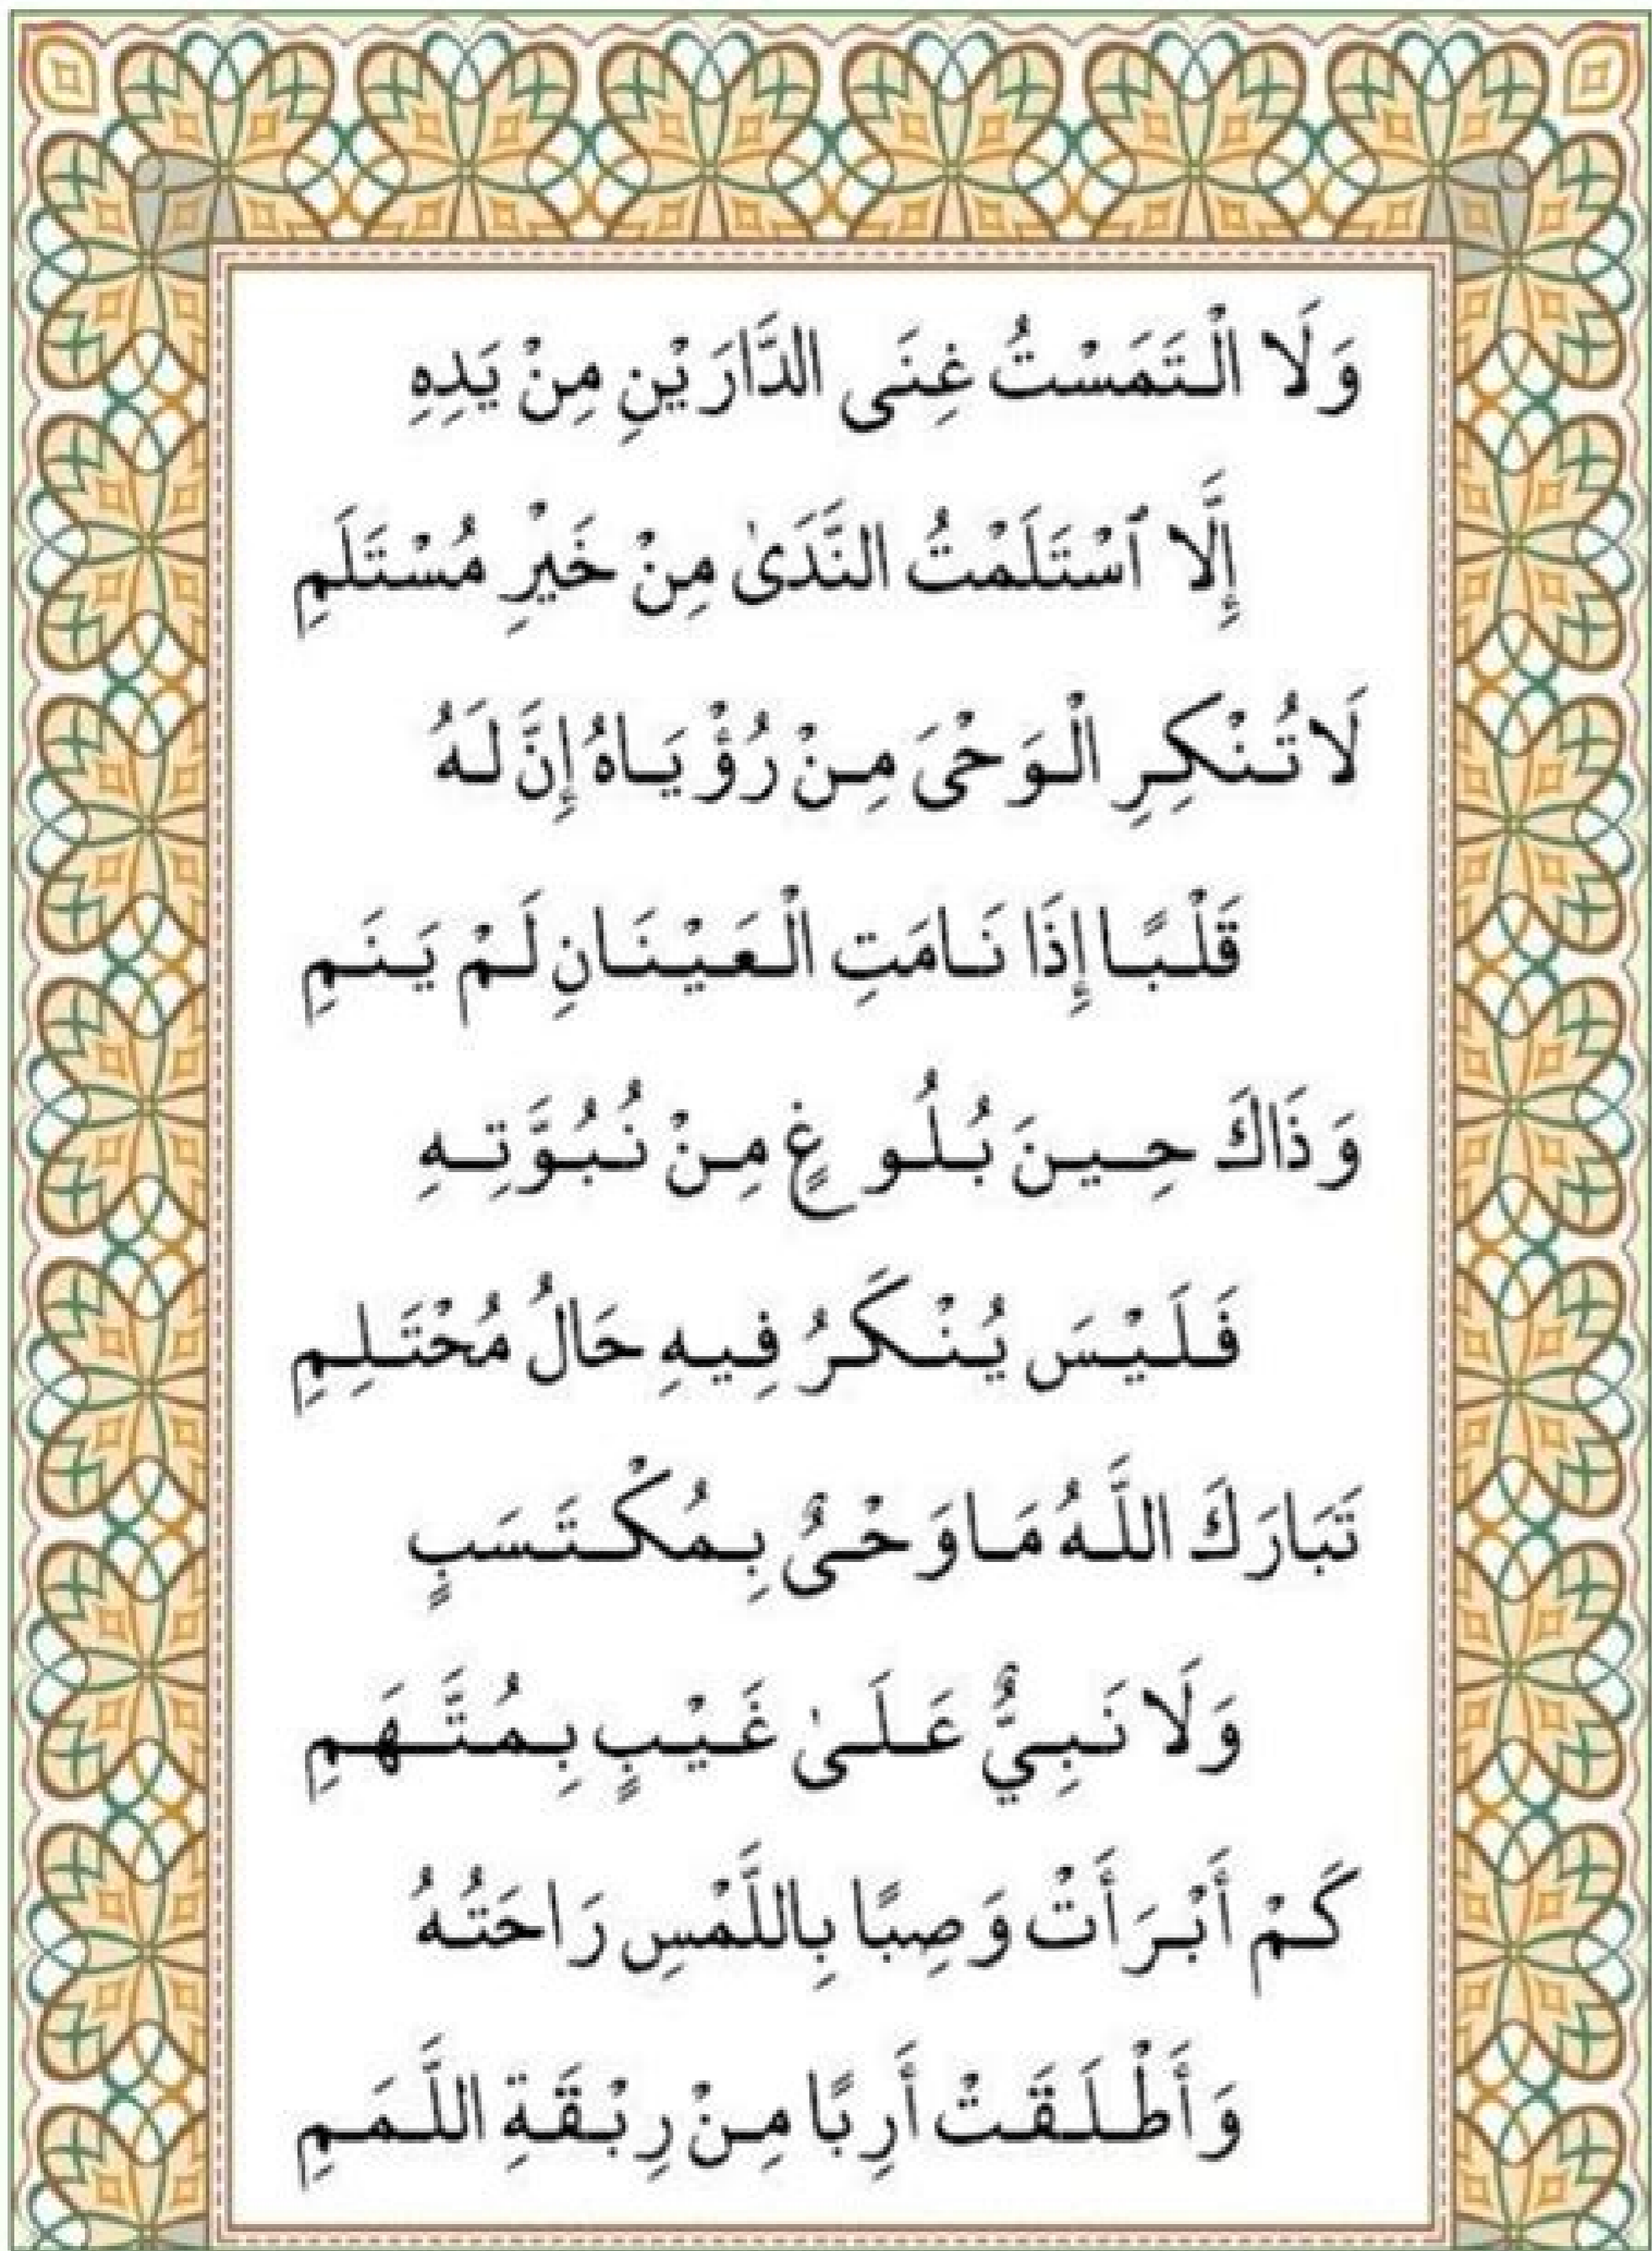 وَلَا الْتَمَسْتُ غِنَى الدَّارَيْنِ مِنْ يَدِهِ
إِلَّا ٱسْتَلَمْتُ النَّدَىٰ مِنْ خَيْرِ مُسْتَلَمِ
لَا تُنْكِرِ الْوَحْىَ مِنْ رُؤْيَاهُ إِنَّ لَهُ
قَلْبًا إِذَا نَامَتِ الْعَيْنَانِ لَمْ يَنَمِ
وَذَاكَ حِينَ بُلُوغٍ مِنْ نُبُوَّتِهِ
فَلَيْسَ يُنْكَرُ فِيهِ حَالُ مُحْتَلِمِ
تَبَارَكَ اللَّهُ مَا وَحْىٌ بِمُكْتَسَبٍ
وَلَا نَبِيٌّ عَلَىٰ غَيْبٍ بِمُتَّهَمِ
كَمْ أَبْرَأَتْ وَصِبًا بِاللَّمْسِ رَاحَتُهُ
وَأَطْلَقَتْ أَرِبًا مِنْ رِبْقَةِ اللَّمَمِ